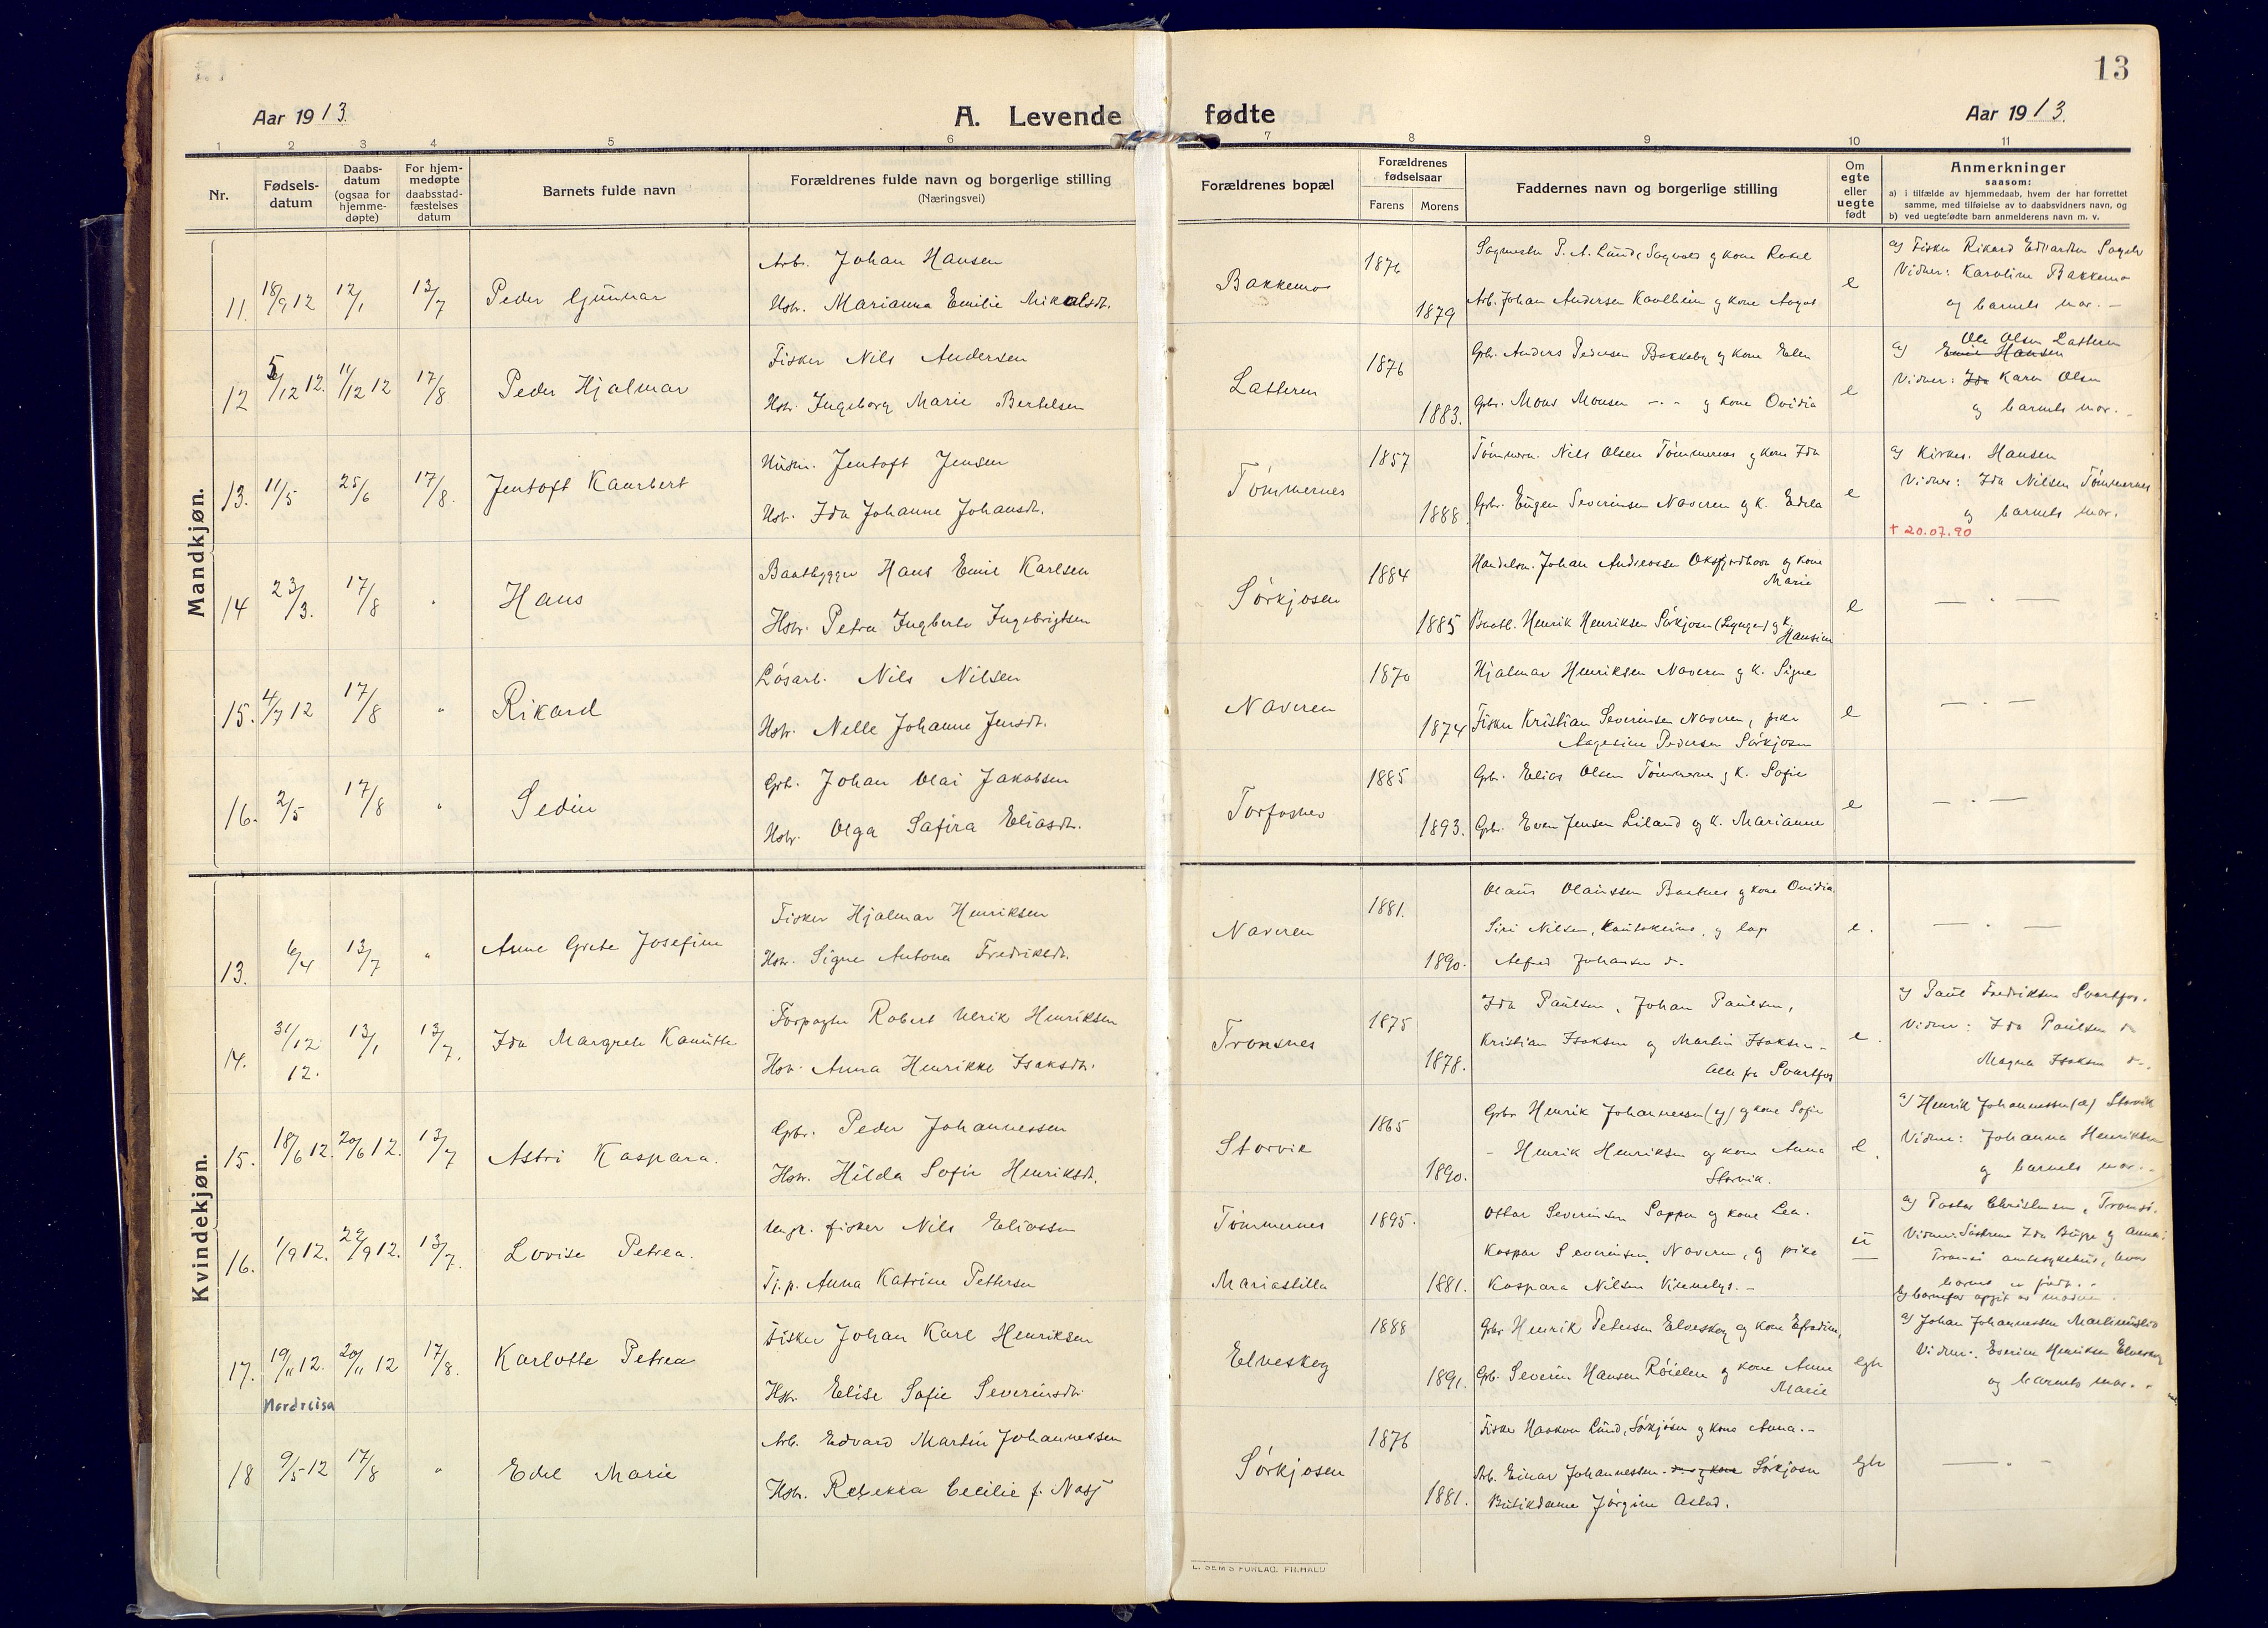 13
Aar 1913.
A. Levende fødte
Aar 1913.
1 2 3 4 5 6 7 8 9 10 11
Nr.
Fødsels-
datum
Daabs-
datum
(ogsaa for
hjemme-
døpte)
For hjem-
medøpte
daabsstad-
fæstelses
datum
Barnets fulde navn
Forældrenes fulde navn og borgerlige stilling
(Næringsvei)
Forældrenes bopæl
Forældrenes
fødselsaar
Farens Morens
Faddernes navn og borgerlige stilling
Om
egte
eller
uegte
født
Anmerkninger
saasom:
a) i tilfælde av hjemmedaab, hvem der har forrettet
samme, med tilføielse av to daabsvidners navn, og
b) ved uegtefødte barn anmelderens navn m. v.
Mandkjøn.
11. 18/9 12 12/1 13/7 Peder Gunnar
Arb. Johan Hansen
Hstr. Marianna Emilie Nikolsdt.
Bakkemo 1876 1879
Sagmester P. A. Lund, Sagvold og kone
Arb. Johan Andersen og kone
e
a) Fisker Rikard Edvardsen
Vidner: Karoline Bakkemo
og barnets mor. -
12 5/12 12. 11/12 12 17/8 Peder Hjalmar
Fisker Nils Andersen
Hstr. Ingeborg Marie Bertelsen
Latteren 1876 1883.
Gbr. Anders Pedersen Bakkeby og kone Elen
Gbr. Mons Monsen -.- og kone Ovidia
e
Ole Olsen Latteren
a) Emil Hansen
Vidner: Ida Karen Olsen
og barnets mor. -
13. 11/5 25/6 17/8. Jentoft Kaurbert
Husm. Jentoft Jensen
Hst. Ida Johanne Johansdt.
Tømmernes 1857 1888.
Tømmerm. Nils Olsen Tømmernes og kone Ida
Gbr. Eugen Severinsen Naveren og k. Edela
e
a) Kirkes. Hansen
Vidner: Ida Nilsen Tømmernes
og barnets mor.
† 20.07.90
14 23/3. 17/8 " Hans
Baatbygger Hans Emil Karlsen
Hstr. Petra Ingberta Ingebrigtsen
Sørkjosen 1884 1885
Handelsm. Johan Andreassen og kone
Marie
Baatb. Henrik Henriksen Sørkjosen og k.
Hansine
e
— " —
15. 4/7 12 17/8 " Rikard
Løsarb. Nils Nilsen
Hstr. Nelle Johanne Jensdt.
Naveren 1870 1874
Hjalmar Henriksen Naveren og k. Signe
Fisker Kristian Severinsen Naveren, pike
Aagesine Pedersen Sørkjosen
e
— " —
16. 2/5 17/8 " Sedin
Gbr. Johan Olai Jakobsen
Hstr. Olga Safira Eliasdt.
Torfoshei 1885 1893.
Gbr. Elias Olsen Tømmernes og k. Sofie
Gbr. Even Jensen Liland og k. Marianne
e
— " —
Kvindekjøn.
13. 6/4 13/7 " Anne Grete Josefine
Fisker Hjalmar Henriksen
Hstr. Signe Antona Fredriksdt.
Naveren 1881. 1890.
Olaus Olaussen Baatnes og kone Ovidia.
Siri Nilsen, Kautokeino, og lap
Alfred Johansen d.
e.
— " —
14. 31/12 12. 13/1 13/7. Ida Margrete Kamitte
Forpagter Robert Ulrik Henriksen
Hstr. Anna Henrikke Isaksdt.
Tronsnes 1875 1878.
Ida Paulsen, Johan Paulsen,
Kristian Isaksen og Martin Isaksen -
Alle fra Svartfos
e.
a) Paul Fredriksen Svartfos.
Vidner: Ida Paulsen
Magna Isaksen
15. 18/6 12. 20/6 12. 13/7 Astri Kaspara.
Gbr. Peder Johannessen
Hstr. Hilda Sofie Henriksdt.
Storvik 1865 1890.
Gbr. Henrik Johannessen og kone Sofie
- Henrik Henriksen og kone Anna
Storvik.
e.
a) Henrik Johannessen Storvik
Vidner: Johanna Henriksen
og barnets mor. -
16. 1/9 12. 22/9 12. 13/7. Lovise Petrea.
Ungk. fisker Nils Eliassen
Tj.p. Anna Katrine Pettersen
Tømmernes 1895.
Mariastilla 1881.
Ottar Severinsen Sappen og kone Lea.
Kaspar Severinsen Naveren, og pike
Kaspara Nilsen -
u
a) Pastor Christensen, Tromsø.
Vidner: Søstrene Ida og Anna:
Tromsø amtssykehus, hvor
barnet er født. -
b) barnefar opgit av moderen.
17. 19/11 12. 20/11 12 17/8. Karlotte Petrea
Nordreisa
Fisker Johan Karl Henriksen
Hstr. Elise Sofie Severinsdt.
Elveskog 1888 1891.
Gbr. Henrik Petersen Elveskog og kone
Gbr. Severin Hansen Røielen og kone Anne
Marie
Egte
a) Johan Johannessen
Vidner: Henriksen Elveskog
og barnets mor. -
18 9/5 12 17/8 " Edel Marie
Arb. Edvard Martin Johannessen
Hstr. Rebekka Cecilie f. Nosj
Sørkjosen 1876 1881.
Fisker Haakon Lund, Sørkjosen og kone Anna. -
Arb. Einar Johannessen Sørkjosen
Butikdame Jørgine Aslad.
Egte
— " -
E. SEM'S FORLAG. FR.HALD